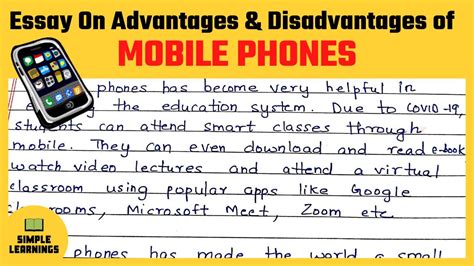 Essay On Advantages & Disadvantages of
MOBILE PHONES
phones has become very helpful in
the education system. Due to COVID-19,
students can attend smart classes through
mobile. They can even download and read e-book
watch video lectures and attend a virtual
classroom using popular apps like Google
rooms, Microsoft Meet, Zoom etc.
phones has made the world a small
SIMPLE
LEARNINGS